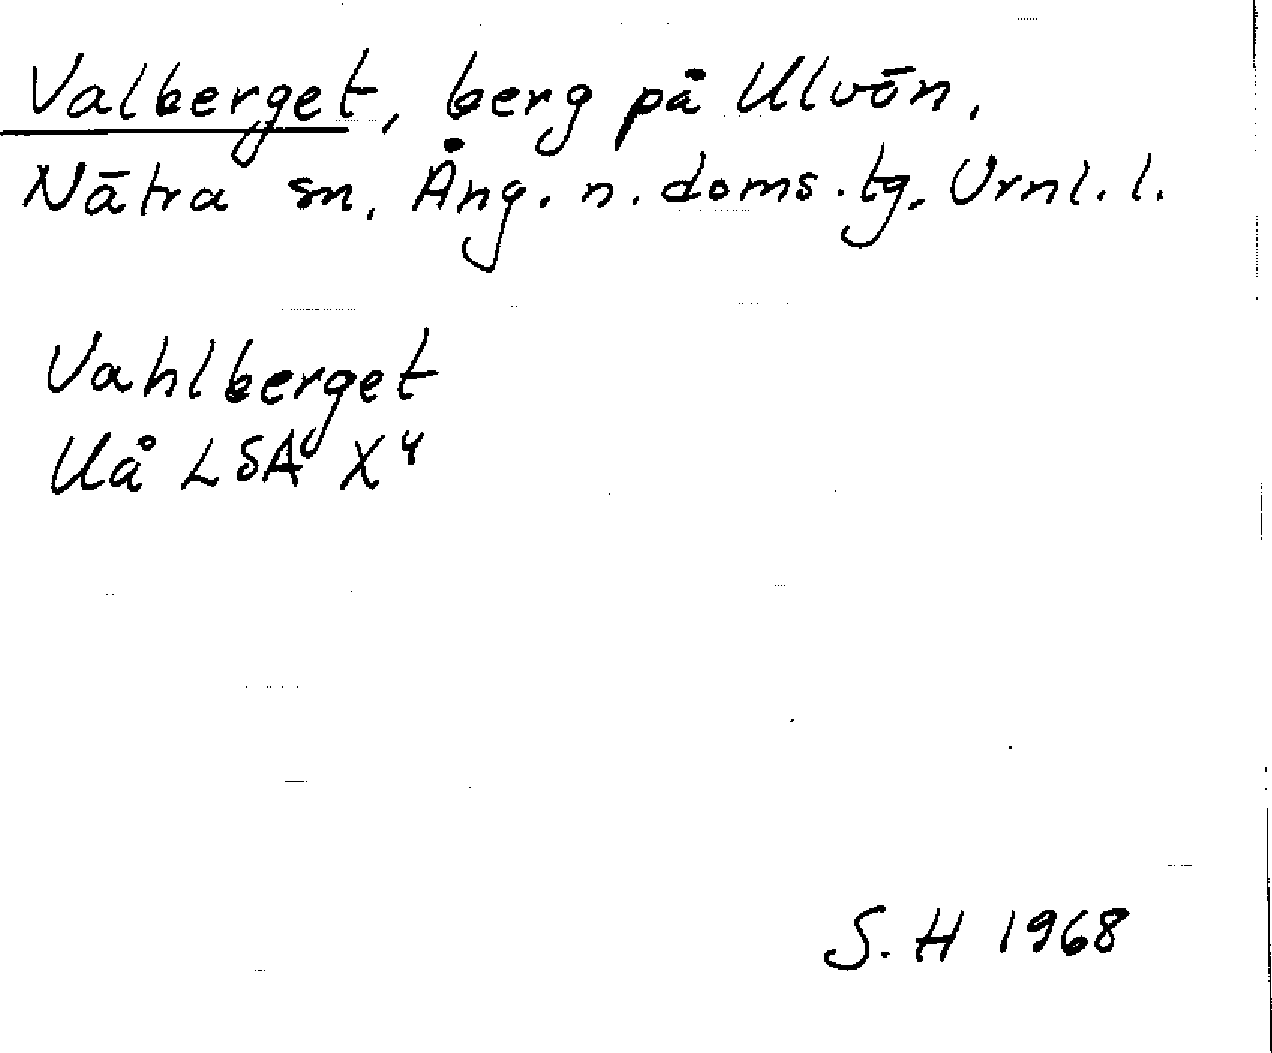 Valberget, berg på Ulvön,
Nätra sn. Ång. n. doms.tg. Vrnl. l.
Vahlberget
Uå LSA X4
S. H 1968